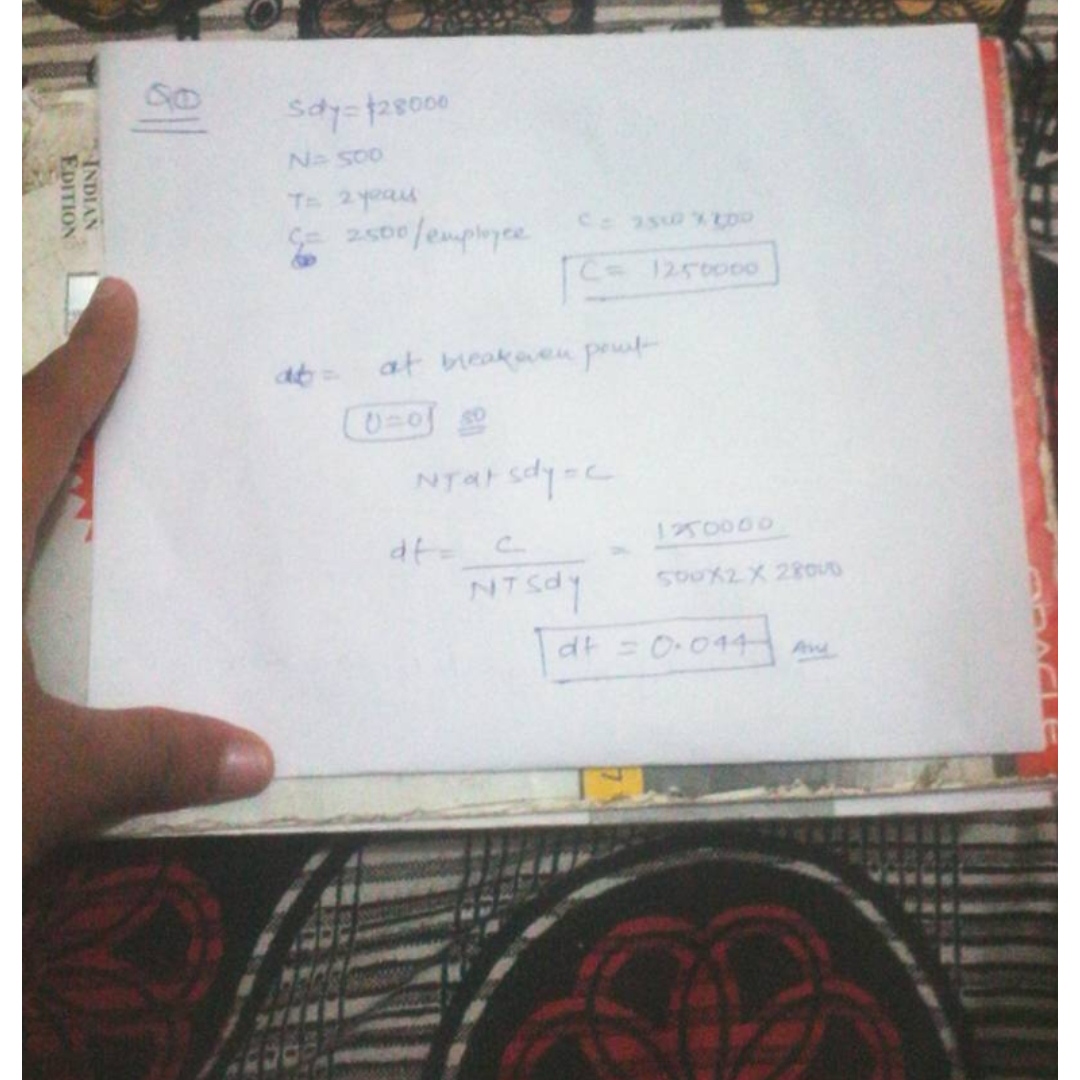 Q①
Sdy = $28000
N = 500
T = 2 years
C = 2500/employee C = 2500 x 500
C = 1250000
dt = at breakeven point
U=0 so
NTdt sdy = C
dt = C / NTSdy = 1250000 / 500X2 X 28000
dt = 0.044 Ans
INDIAN
EDITION
ORACLE